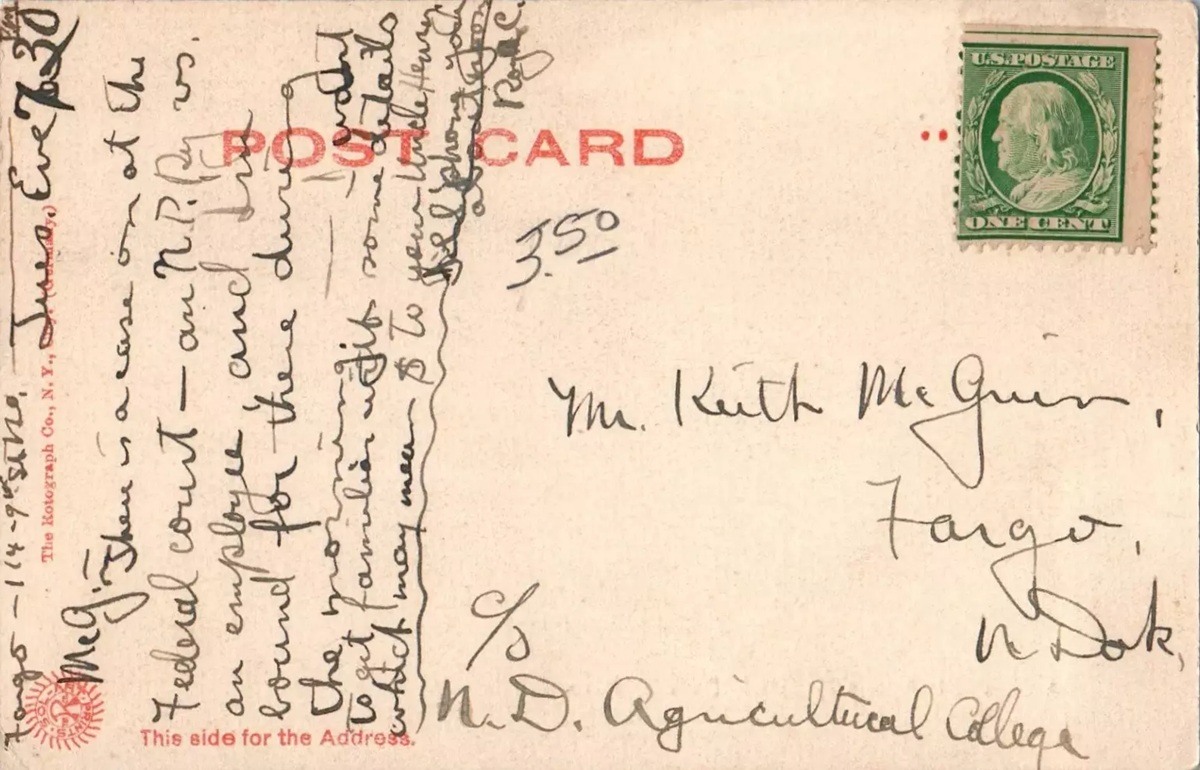 Fargo – 114 – 9th St No. Tues. Eve 7:30
McG:–
There is a case on at the
Federal court – an N.P. Ry vs.
an employee and I'm
bound for there during
the morning – – and
to get familiar with some details
which may mean $ to your Uncle Henry
phone you
about noon
Roy C.
The Rotograph Co., N. Y., (Germany.)
POST CARD
This side for the Address.
U.S. POSTAGE
ONE CENT
3.50
Mr. Keith McGuin,
Fargo,
N Dak,
c/o
N. D. Agricultural College